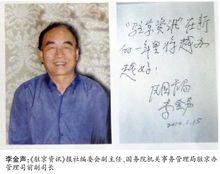 "驻京资讯"在新
的一年里将越办
越好。
李金声
2010.1.15
李金声:《驻京资讯》报社编委会副主任、国务院机关事务管理局驻京办
管理司前副司长